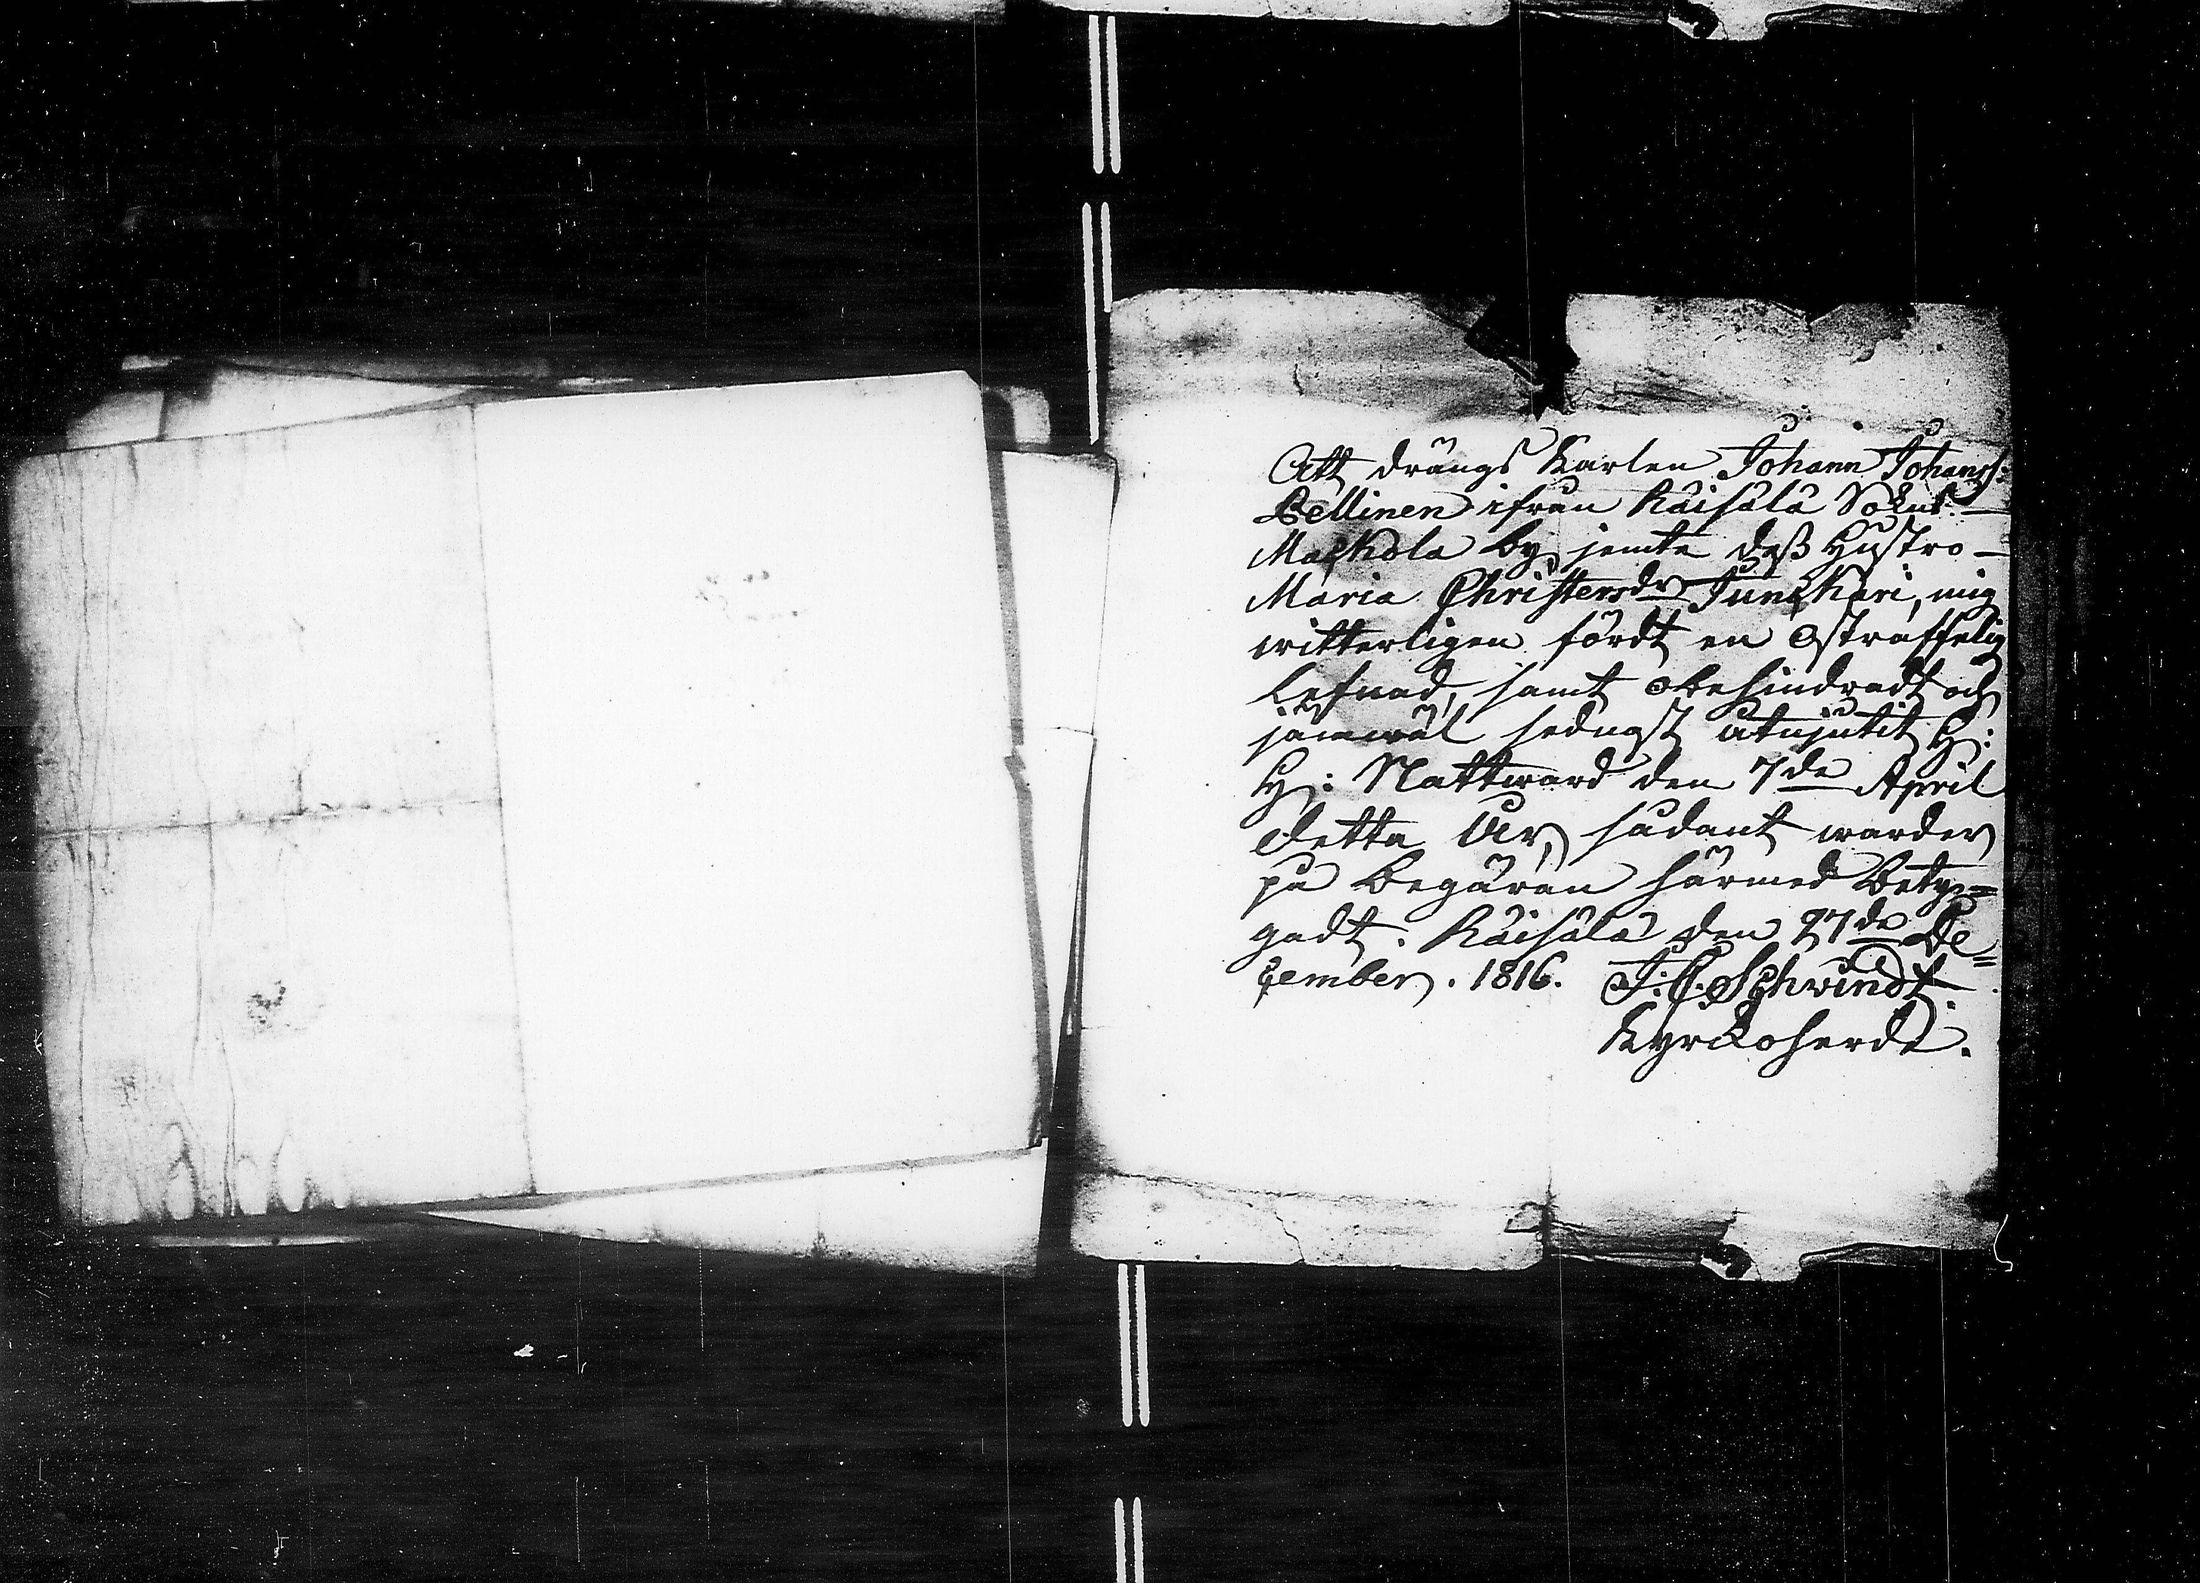 Att drängs Karlen Johann Johanss:
Pellinen ifrån Räisälä Sokns
Mackola by jemte dess Hustro
Maria Christersdr Junckari, mig
witterligen fördt en Ostraffelig
Lefnad, samt obehindradt och
jämwäl sednast utnjutit H:
H: Nattward den 7de April
detta År, sådant warder
på begäran härmed Bety=
gadt. Räisälä den 27de De=
cember. 1816. J: C: Schwindt.
Kyrckoherde.